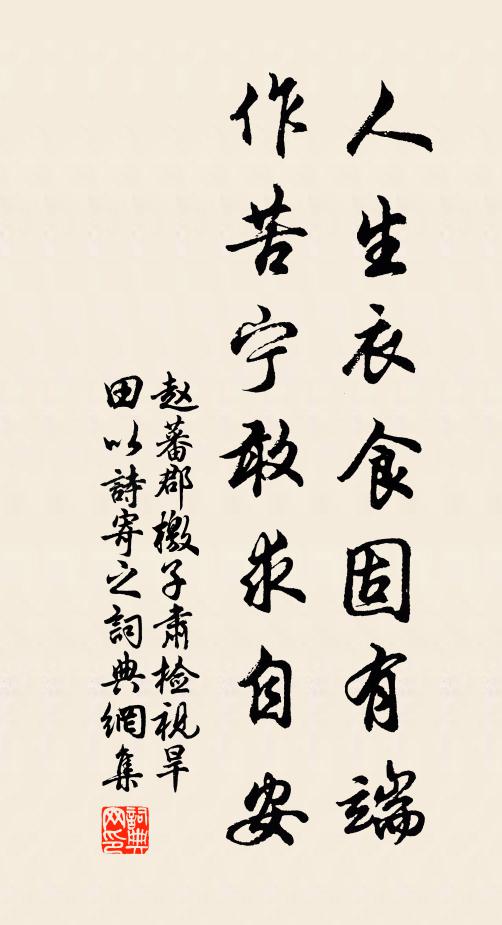 人生衣食固有端
作苦宁敢求自安
赵蕃郡檄子肃检视旱
田以詩寄之詞典網集
詞典网印